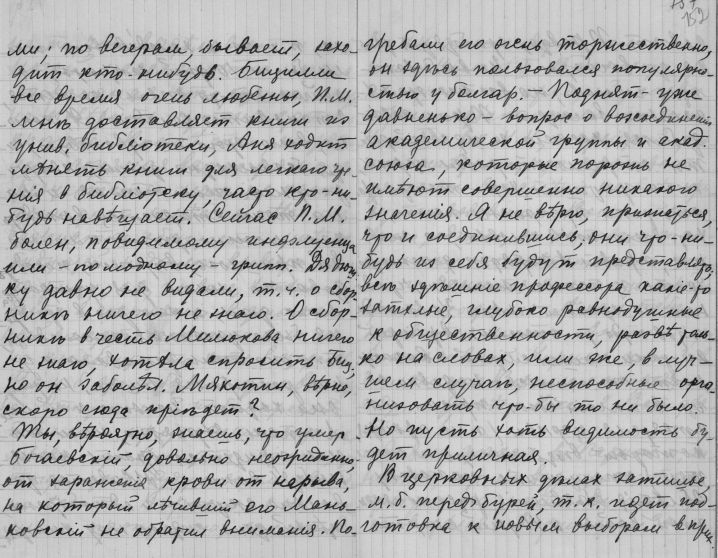 157
152
ми; по вечерам, бывает, захо-
дит кто-нибудь. Бицилли
все время очень любезны, П.М.
мнѣ доставляет книги из
унив. библіотеки, Аня ходит
мѣнять книги для легкаго чте-
нія в библіотеку, часто кто-ни-
будь навѣщает. Сейчас П.М.
болен, повидимому инфлуенца
или - по модному - грипп.
ку давно не видали, т.ч. о сбор-
никѣ ничего не знаю. О сбор-
никѣ в честь Милюкова ничего
не знаю, хотѣла спросить Биц.,
но он заболѣл. Мякотин, вѣрно,
скоро сюда пріѣдет?
Ты, вѣроятно, знаешь, что умер
Богаевскій, довольно неожиданно,
от зараженія крови от нарыва,
на который лѣчившій его Мань-
ковскій не обратил вниманія. По-
гребали его очень торжественно,
он здѣсь пользовался популярно-
стью у болгар. - Поднят - уже
давненько - вопрос о возсоединеніи
академической группы и акад.
союза, которые порознь не
имѣют совершенно никакого
значенія. Я не вѣрю, признаться,
что и соединившись, они что-ни-
будь из себя будут представлять,
всѣ здѣшніе профессора какіе-то
затхлые, глубоко равнодушные
к общественности, развѣ толь-
ко на словах, или же, в луч-
шем случаѣ, неспособные орга-
низовать что-бы то ни было.
Но пусть хоть видимость бу-
дет приличная.
В церковных дѣлах затишье,
м.б. перед бурей, т.к. идет под-
готовка к новым выборам в прих.